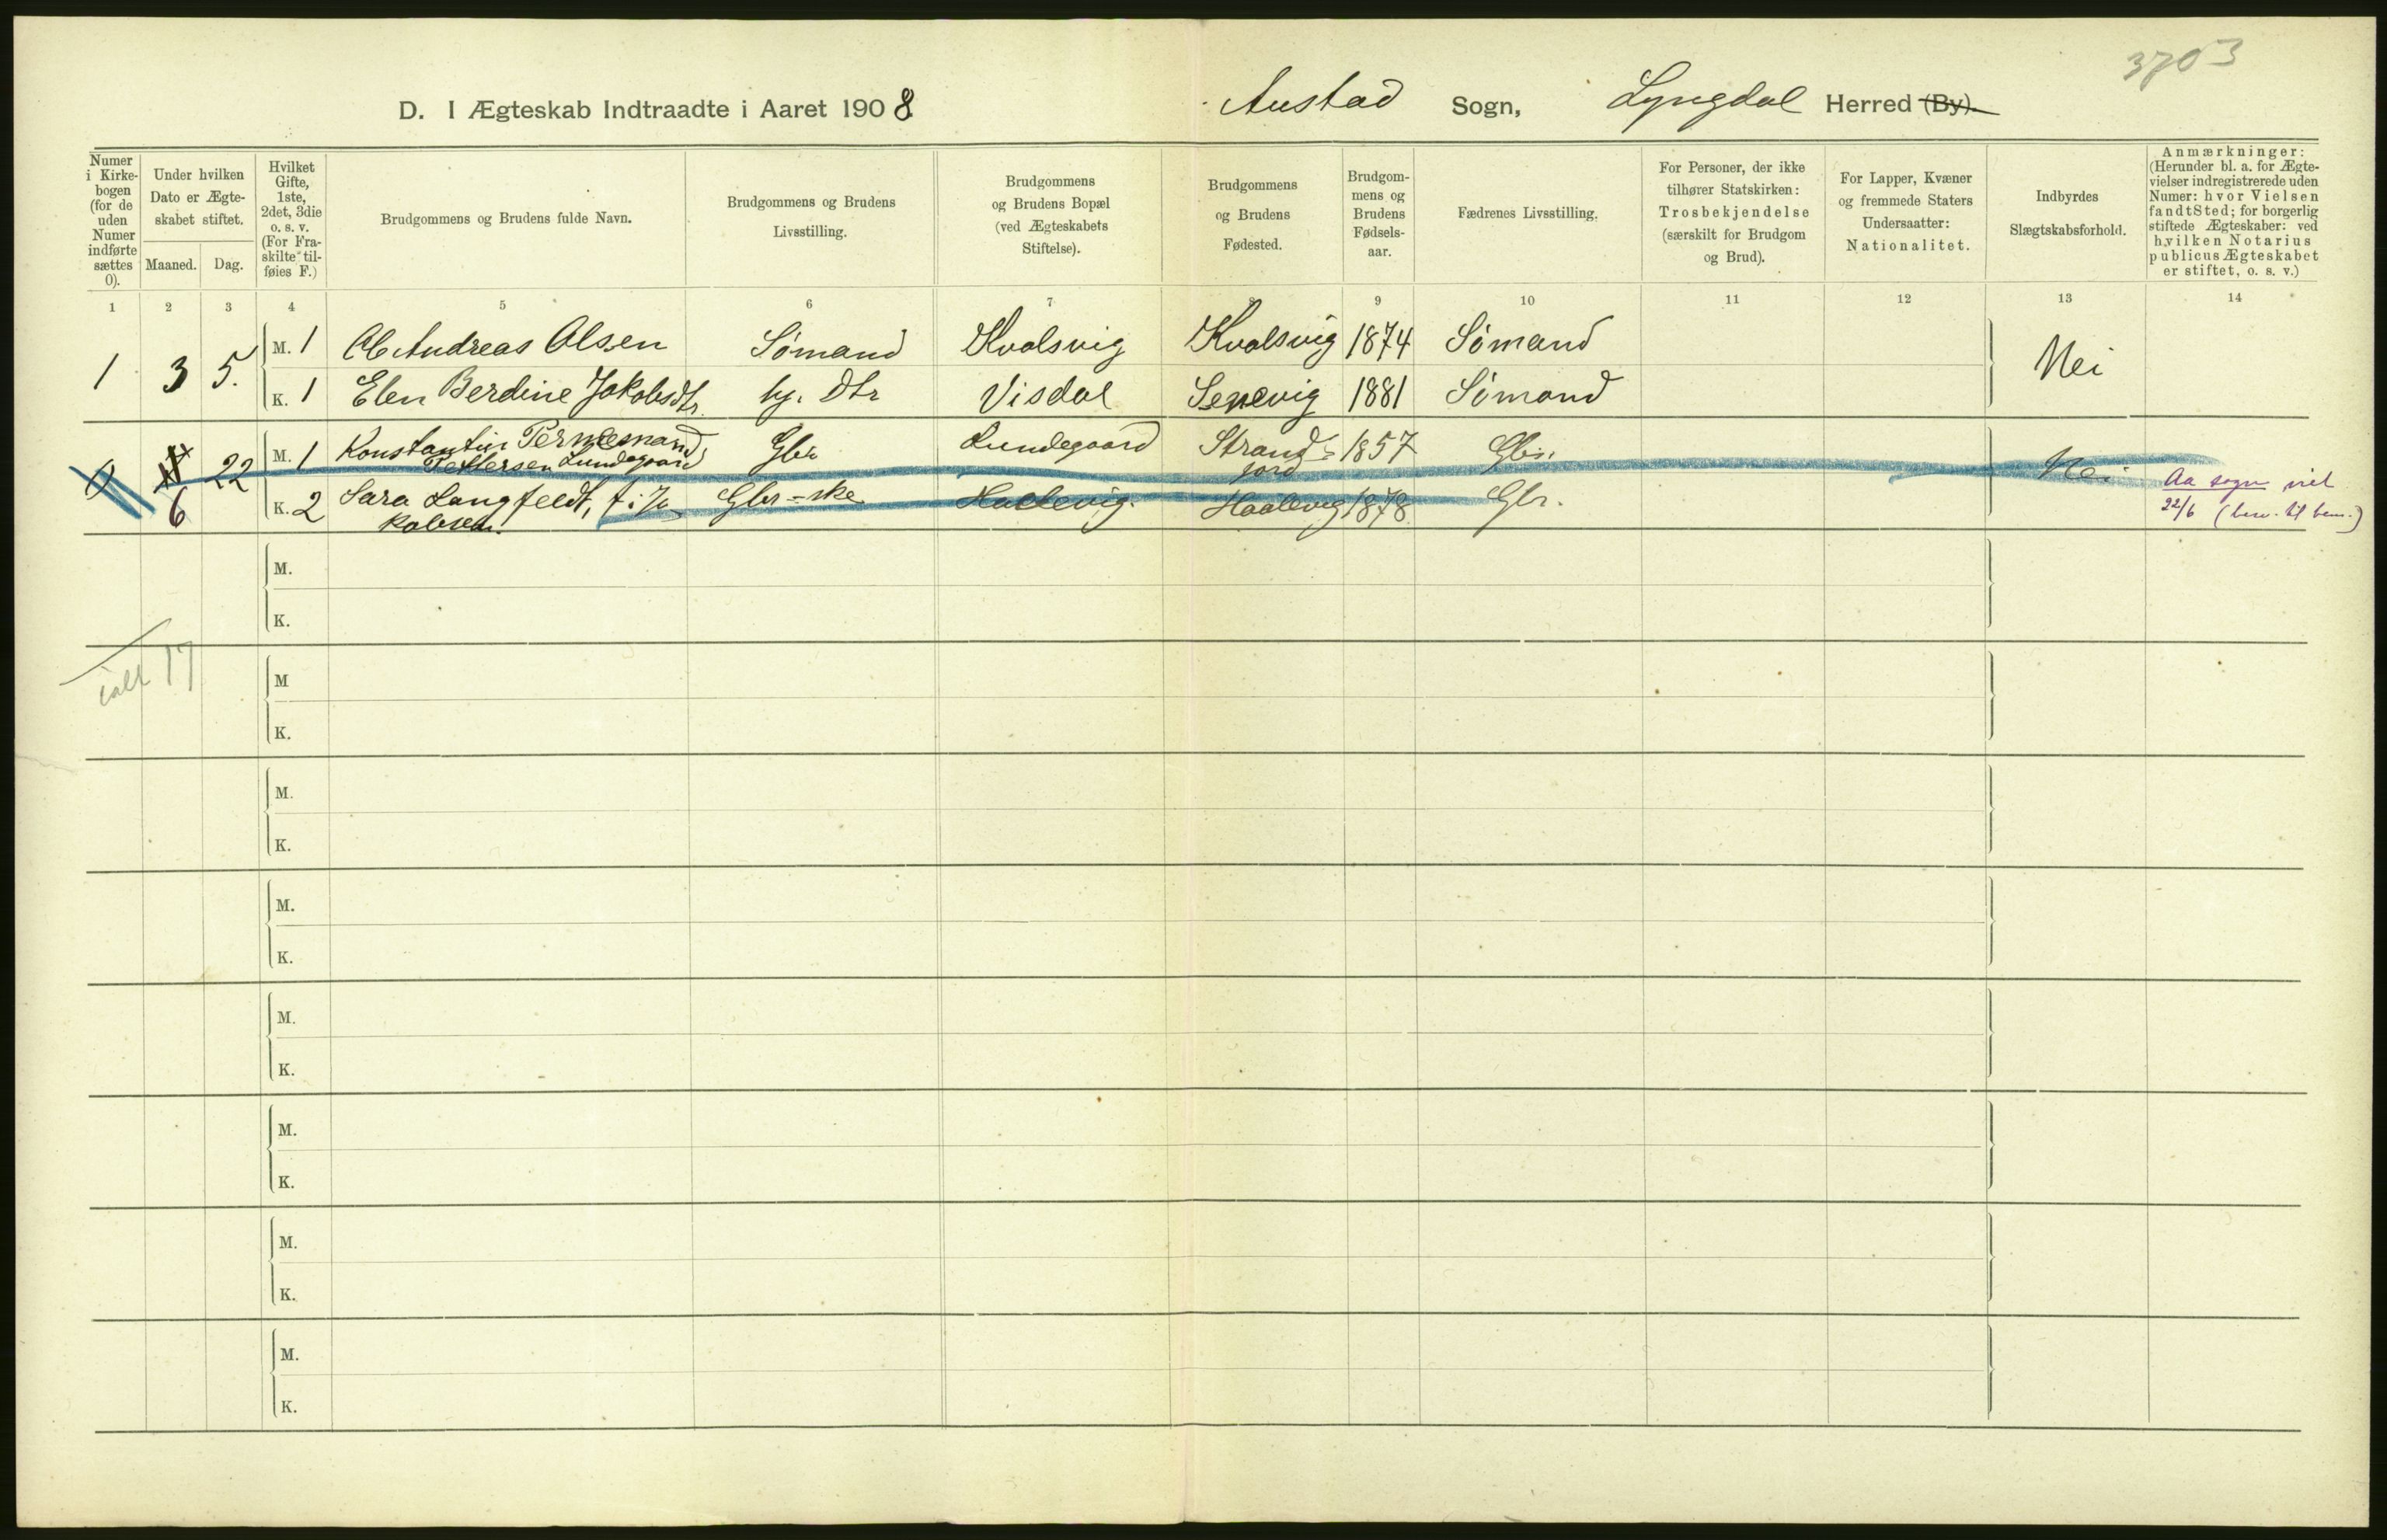 3703
D. I Ægteskab Indtraadte i Aaret 1908. Austad Sogn, Lyngdal Herred (By).
Numer i Kirkebogen (for de uden Numer indførte sættes 0).
Under hvilken Dato er Ægteskabet stiftet.
Maaned. Dag.
Hvilket Gifte, 1ste, 2det, 3die o. s. v. (For Fraskilte tilføies F.)
Brudgommens og Brudens fulde Navn.
Brudgommens og Brudens Livsstilling.
Brudgommens og Brudens Bopæl (ved Ægteskabets Stiftelse).
Brudgommens og Brudens Fødested.
Brudgommens og Brudens Fødselsaar.
Fædrenes Livsstilling.
For Personer, der ikke tilhører Statskirken: Trosbekjendelse (særskilt for Brudgom og Brud).
For Lapper, Kvæner og fremmede Staters Undersaatter: Nationalitet.
Indbyrdes Slægtskabsforhold.
Anmærkninger: (Herunder bl. a. for Ægtevielser indregistrerede uden Numer: hvor Vielsen fandt Sted; for borgerlig stiftede Ægteskaber: ved hvilken Notarius publicus Ægteskabet er stiftet, o. s. v.)
1 2 3 4 5 6 7 8 9 10 11 12 13 14
1 3 5. M. 1 Ol Andreas Olsen Sømand Kvalsvig Kvalsvig 1874 Sømand Nei
K. 1 Elen Berdine Jakobsdtr. hj. Dtr Visdal Senevig 1881 Sømand
22 M. 1 Konstantin Pettersen Lundegaard Gbr Lundegaard Strandjord 1857 Gbr. Nei
6 K. 2 Sara Langfeldt, f: Jakobsen. Gbr-ske Haalevig. Haalevig 1878 Gbr. Aa sogn viet
22/6
M.
K.
ialt 17
M
K.
M.
K.
M.
K.
M.
K.
M.
K.
M.
K.
M.
K.